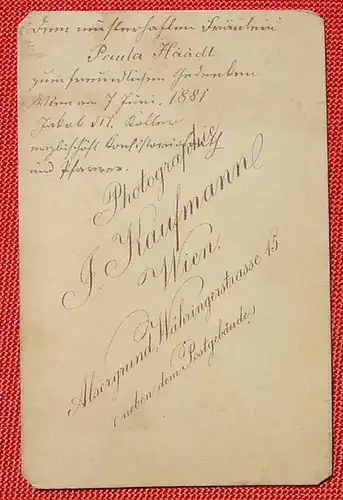 Dem musterhaften Fräulein
Paula Haadt
zum freundlichen Gedenken
Wien am 7 Juni. 1881
Jakob
und Pfarrer.
Photographie
J. Kaufmann
Wien,
Alsergrund, Währingerstrasse 15
(neben dem Postgebäude)